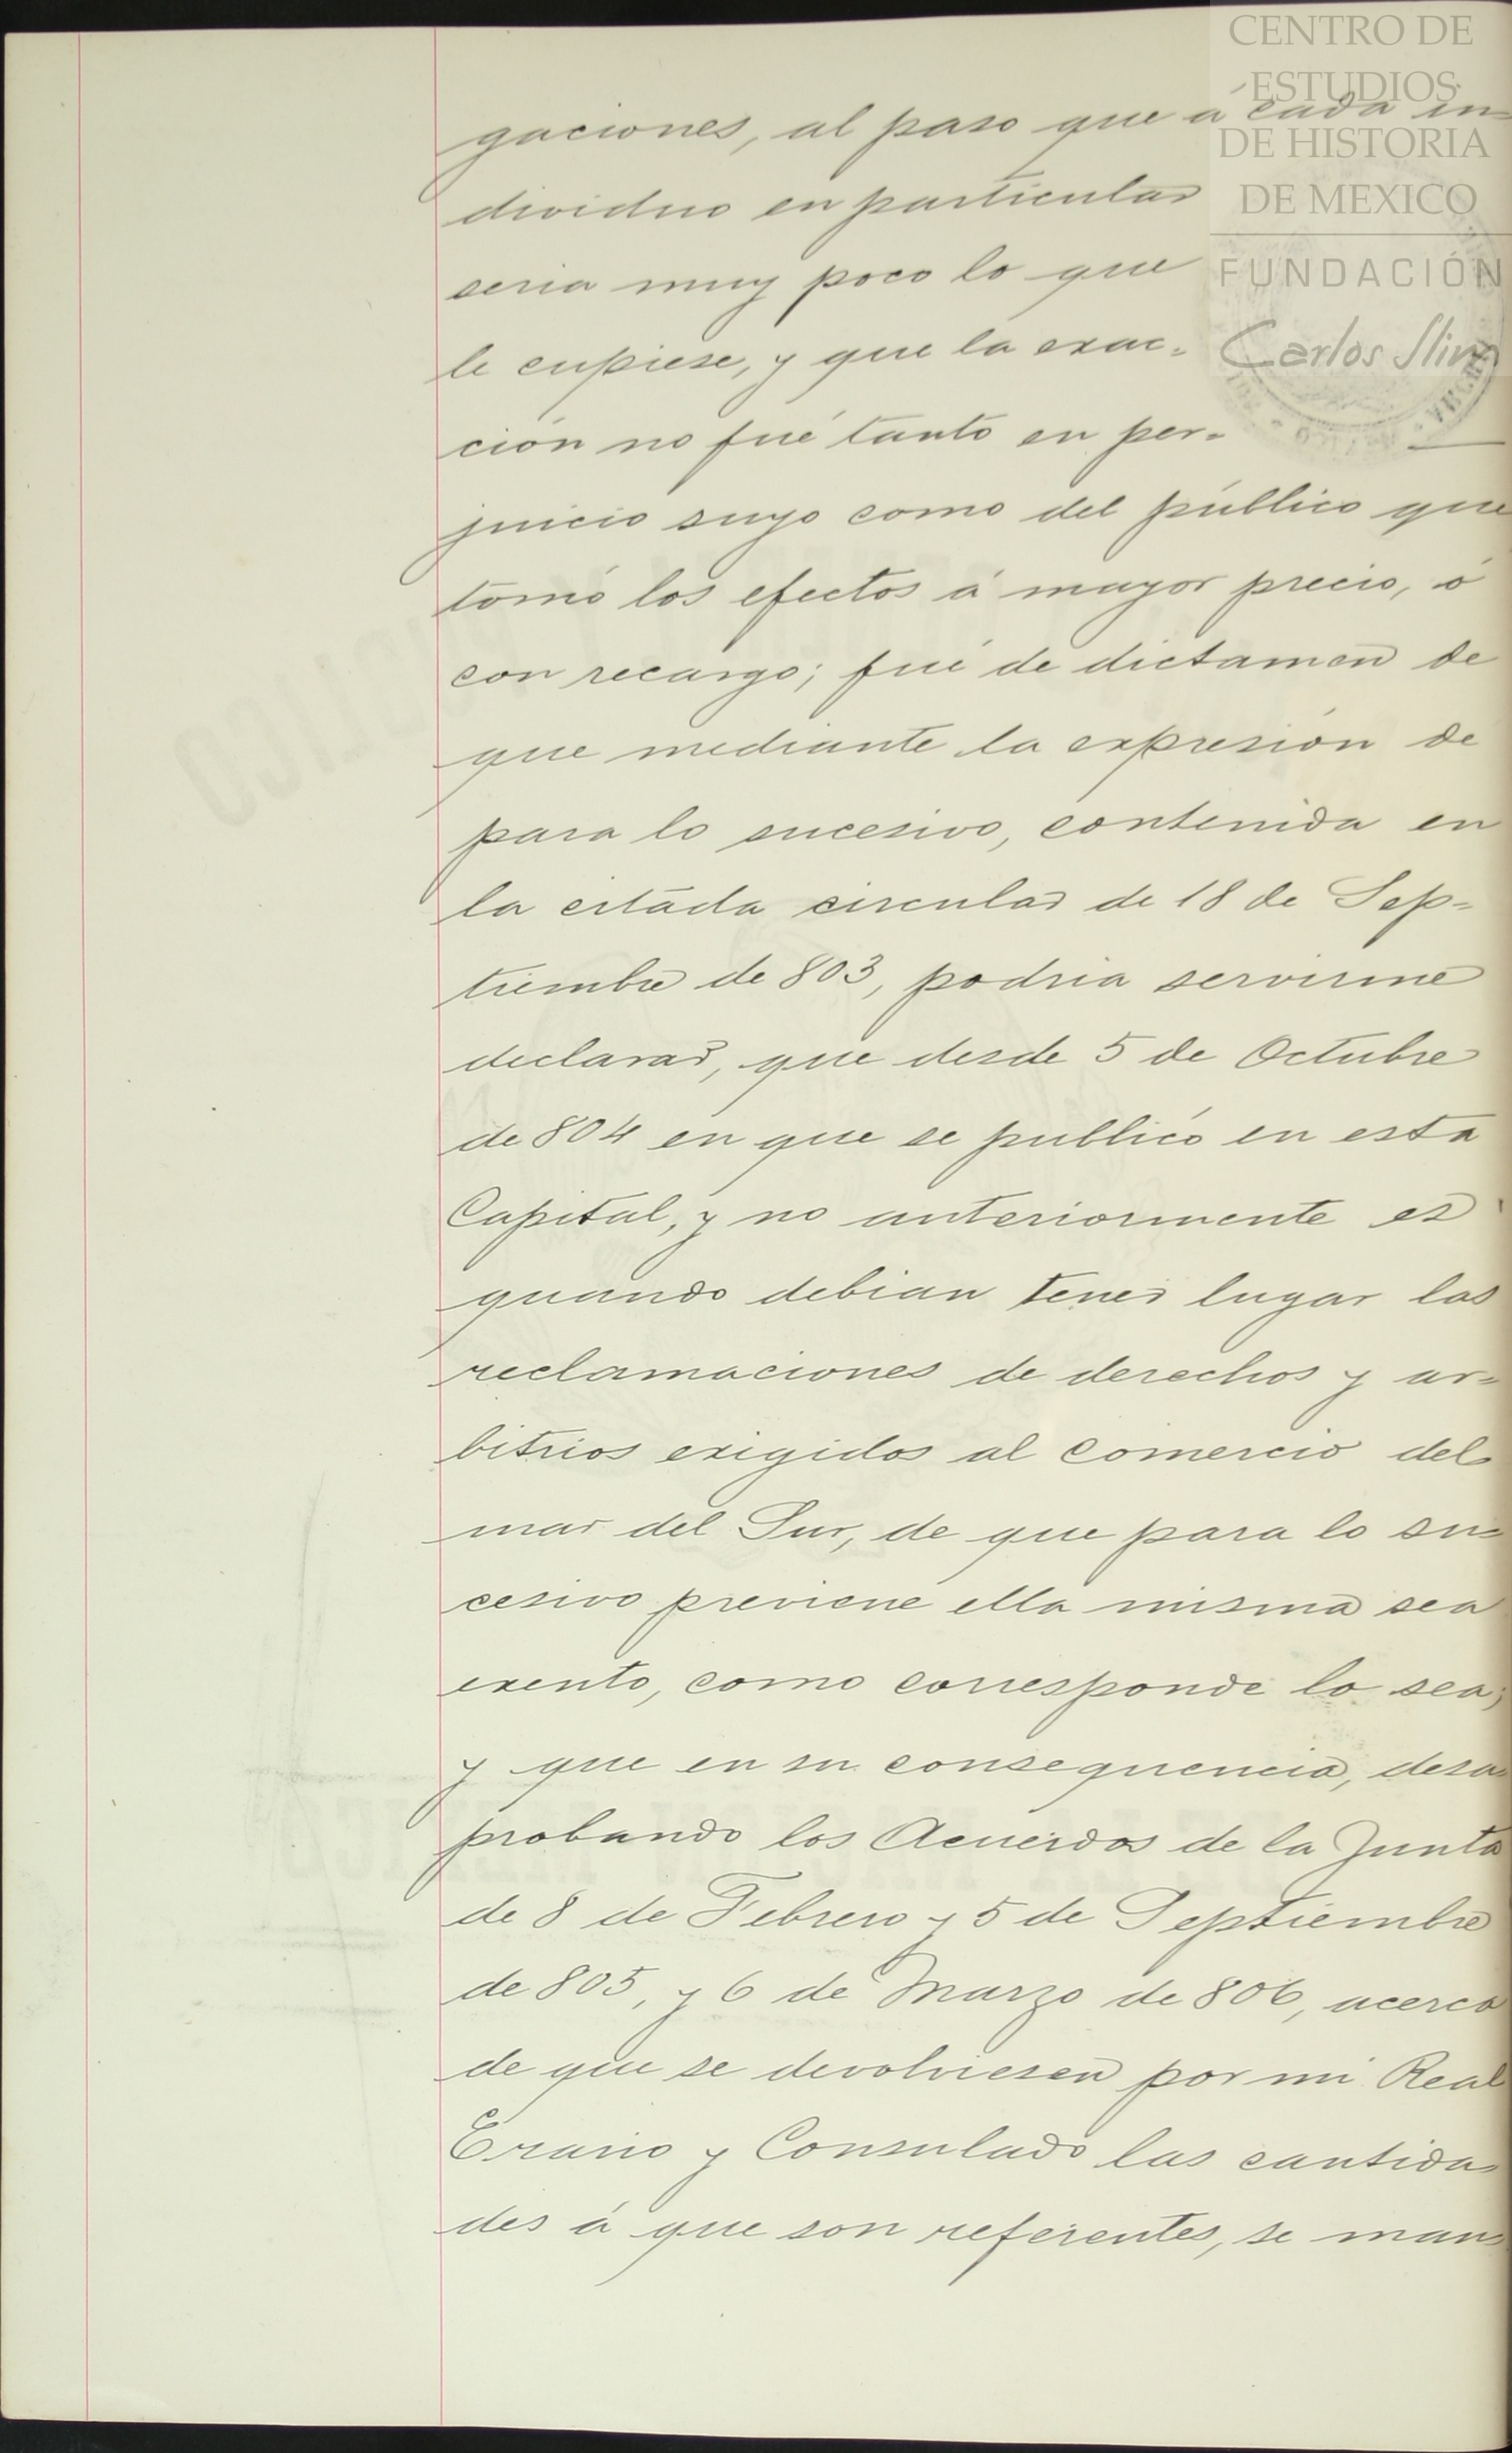 CENTRO DE
ESTUDIOS
DE HISTORIA
DE MEXICO
FUNDACIÓN
Carlos Slim
gaciones, al paso que á cada in=
dividuo en particular
seria muy poco lo que
le cupiese, y que la exac=
ción no fué tanto en per=
juicio suyo como del público que
tomó los efectos á mayor precio, ó
con recargo; fué de dictamen de
que mediante la expresión de
para lo sucesivo, contenida en
la citada circular de 18 de Sep=
tiembre de 803, podria servirme
declarar, que desde 5 de Octubre
de 804 en que se publicó en esta
Capital, y no anteriormente es
quando debian tener lugar las
reclamaciones de derechos y ar=
bitrios exigidos al comercio del
mar del Sur, de que para lo su=
cesivo previene ella misma sea
exento, como corresponde lo sea;
y que en su consequencia, desa=
probando los Acuerdos de la Junta
de 8 de Febrero y 5 de Septiembre
de 805, y 6 de Marzo de 806, acerca
de que se devolviesen por mi Real
Erario y Consulado las cantida=
des á que son referentes, se man=